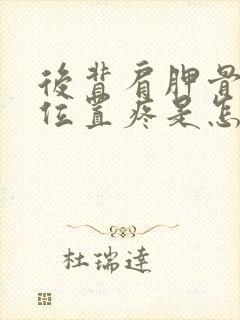 後背肩胛骨
位置疼是怎
杜瑞達